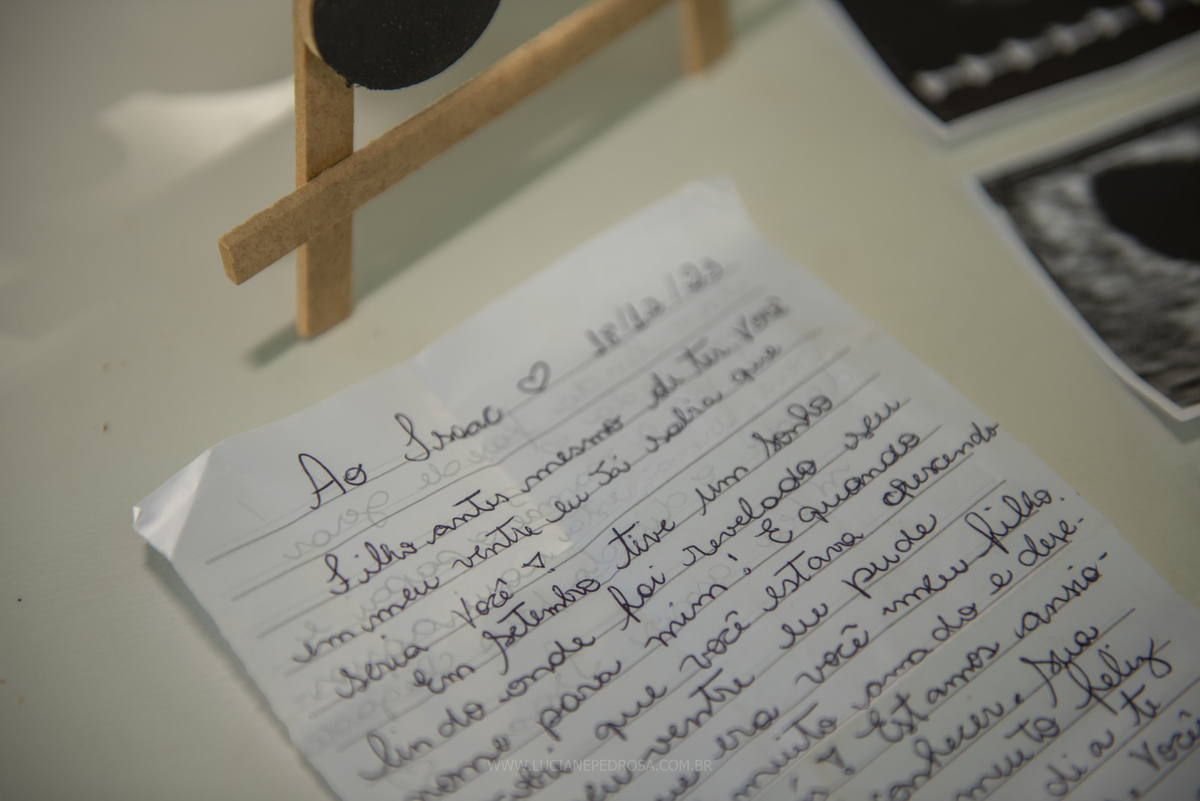 Ao Isaac ♡ 18/12/23
Filho antes mesmo de ter você
em meu ventre eu já sabia que
seria você ♡.
Em setembro tive um sonho
lindo onde foi revelado seu
nome para mim! E quando
que você estava crescendo
ventre eu pude
era você meu filho.
muito amado e dese-
Estamos ansio-
Sua
muito feliz
dia te
você
WWW.LUCIANEPEDROSA.COM.BR